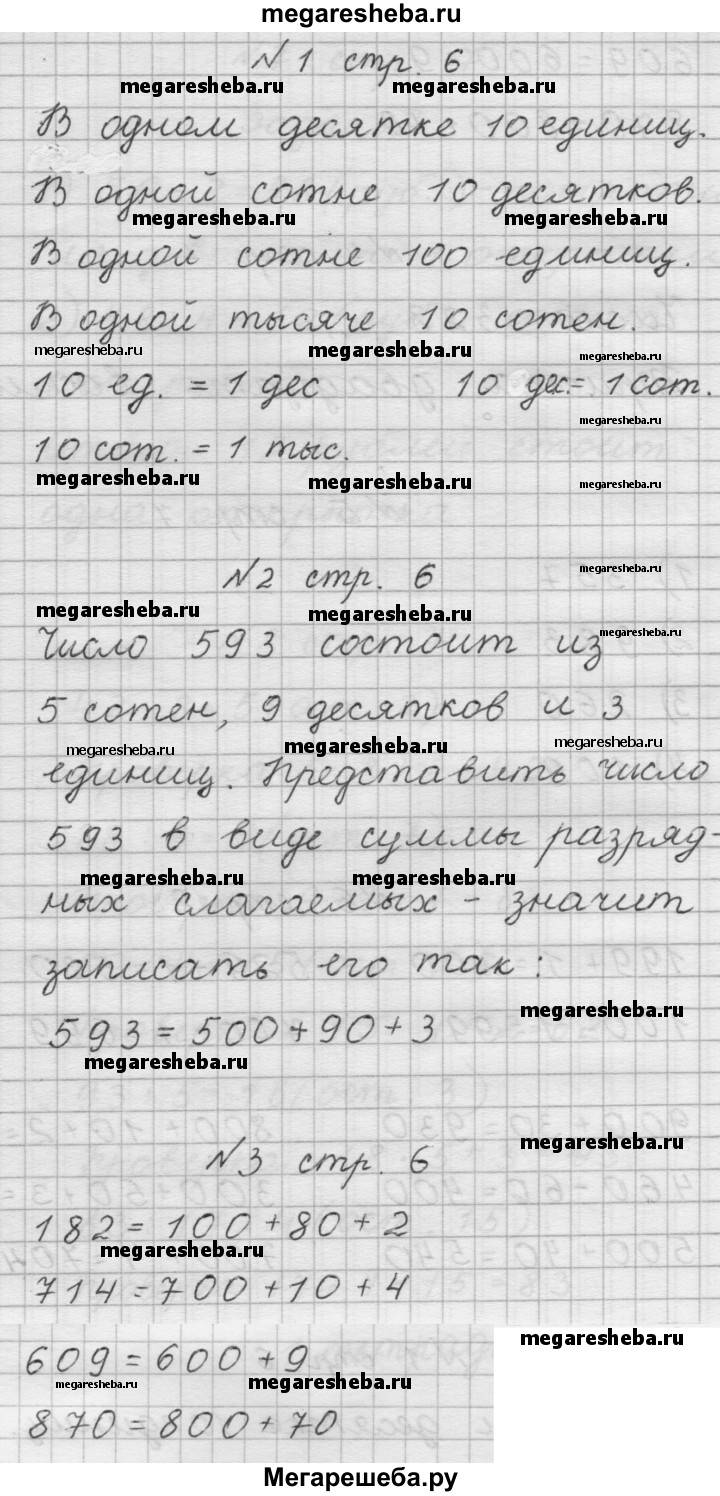 megaresheba.ru
№1 стр. 6
megaresheba.ru megaresheba.ru
В одном десятке 10 единиц.
В одной сотне 10 десятков.
megaresheba.ru megaresheba.ru
В одной сотне 100 единиц.
В одной тысяче 10 сотен.
megaresheba.ru megaresheba.ru megaresheba.ru
10 ед. = 1 дес 10 дес. = 1 сот.
megaresheba.ru
10 сот. = 1 тыс.
megaresheba.ru megaresheba.ru megaresheba.ru
№2 стр. 6
megaresheba.ru
megaresheba.ru megaresheba.ru
megaresheba.ru
Число 593 состоит из
5 сотен, 9 десятков и 3
megaresheba.ru megaresheba.ru megaresheba.ru
единиц. Представить число
593 в виде суммы разряд-
megaresheba.ru megaresheba.ru
ных слагаемых - значит
записать его так:
megaresheba.ru
593 = 500 + 90 + 3
megaresheba.ru
megaresheba.ru
№3 стр. 6
182 = 100 + 80 + 2
megaresheba.ru
714 = 700 + 10 + 4
megaresheba.ru
609 = 600 + 9
megaresheba.ru megaresheba.ru
870 = 800 + 70
Мегарешеба.ру